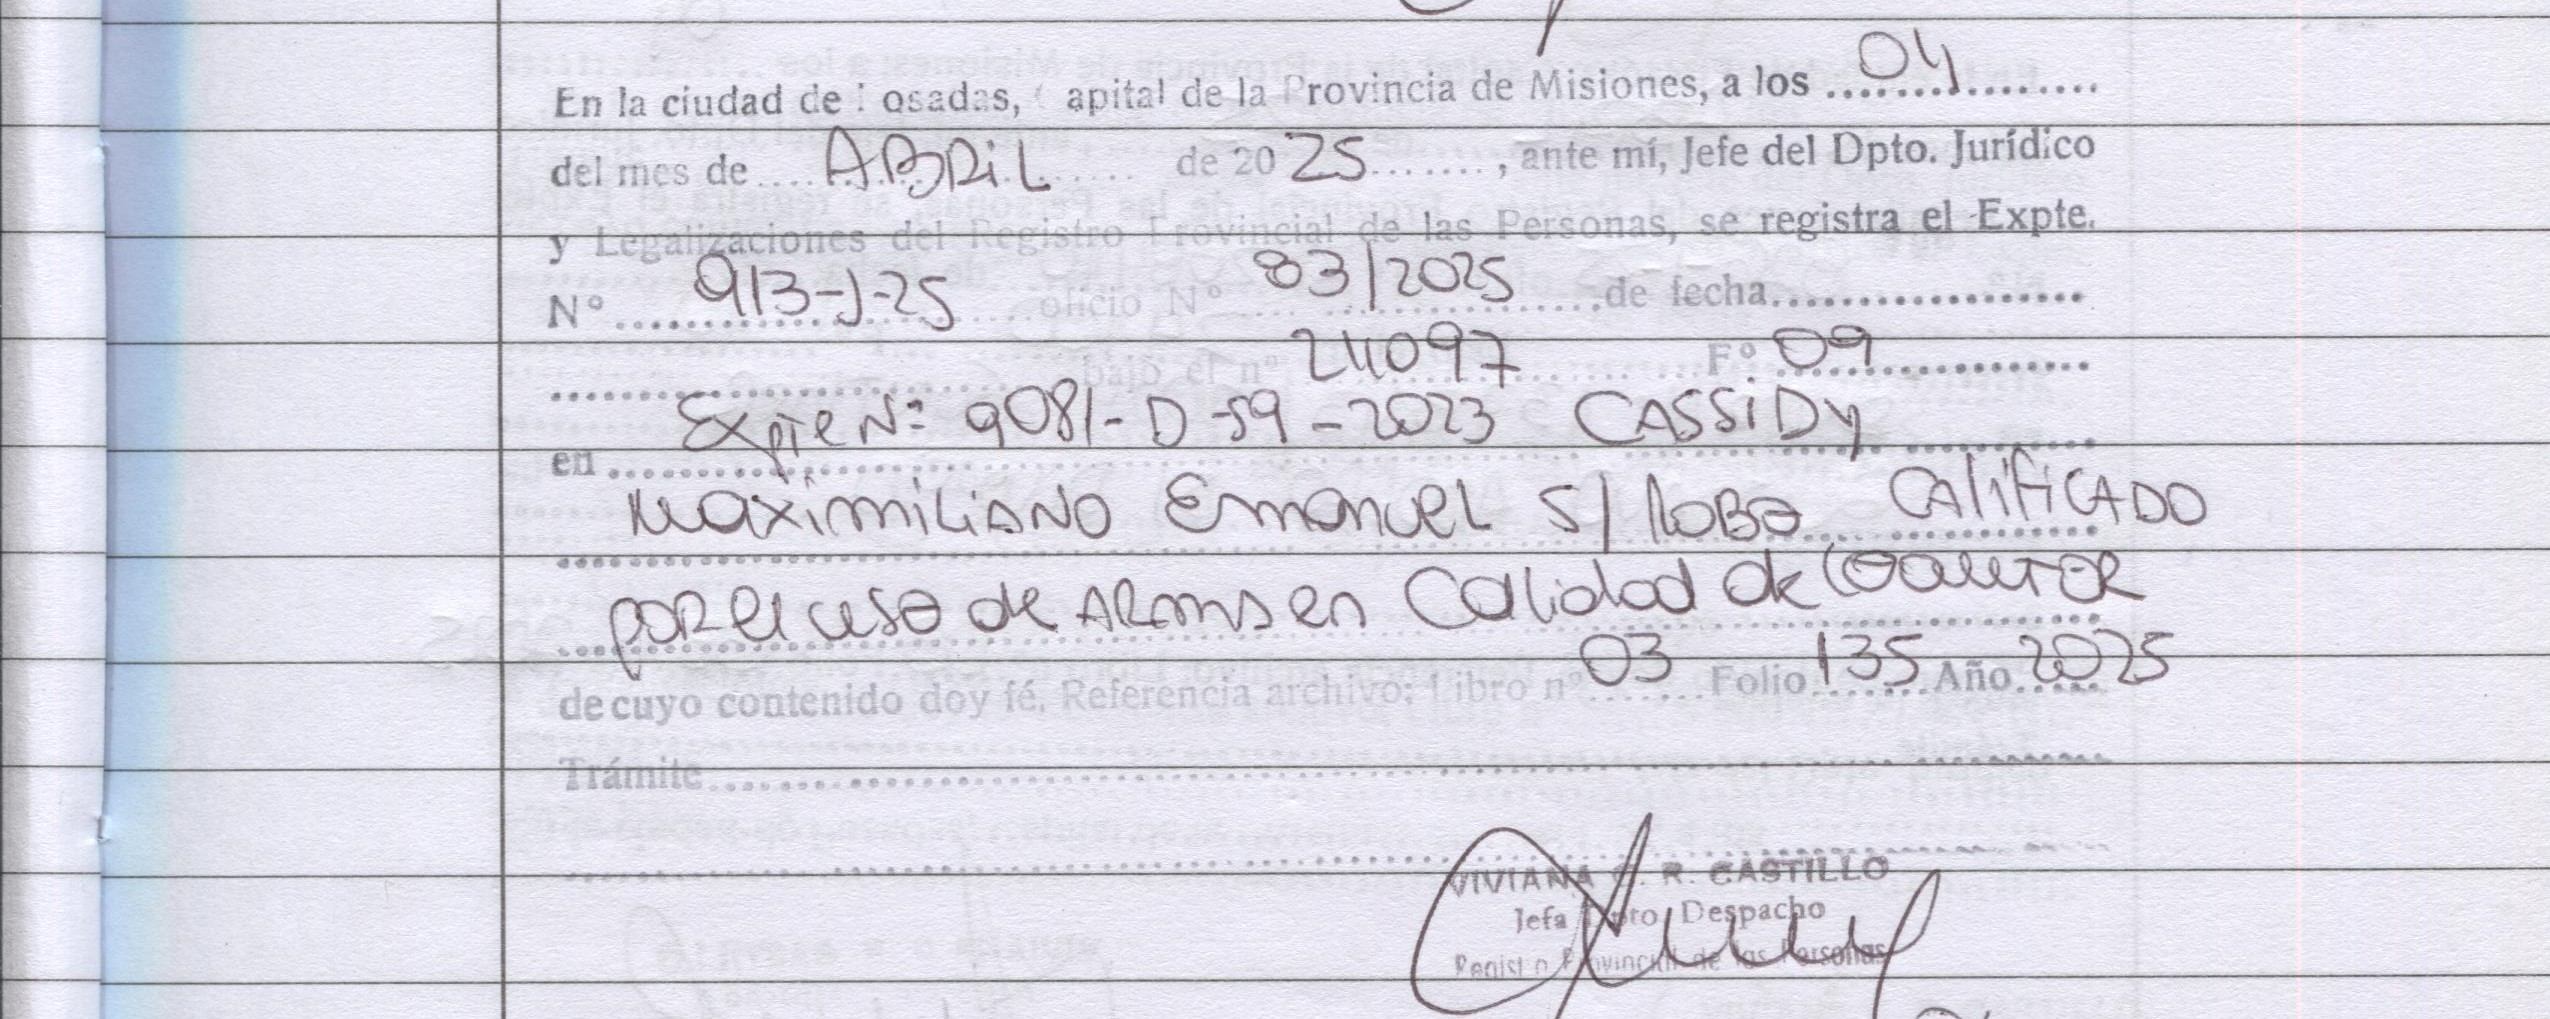 En la ciudad de Posadas, Capital de la Provincia de Misiones, a los 04
del mes de ABRIL de 2025, ante mí, Jefe del Dpto. Jurídico
y Legalizaciones del Registro Provincial de las Personas, se registra el Expte.
N° 913-J-25 oficio N° 83/2025 de fecha
bajo el n° 24097 F° 09
en Expte N° 9081-D-59-2023 CASSIDY
MAXIMILIANO EMANUEL S/ ROBO CALIFICADO
POR EL USO de ARMAS en Calidad de COAUTOR
de cuyo contenido doy fé. Referencia archivo: Libro n° 03 Folio 135 Año 2025
Trámite
VIVIANA R. CASTILLO
Jefa Dpto Despacho
Registro Provincial de las Personas